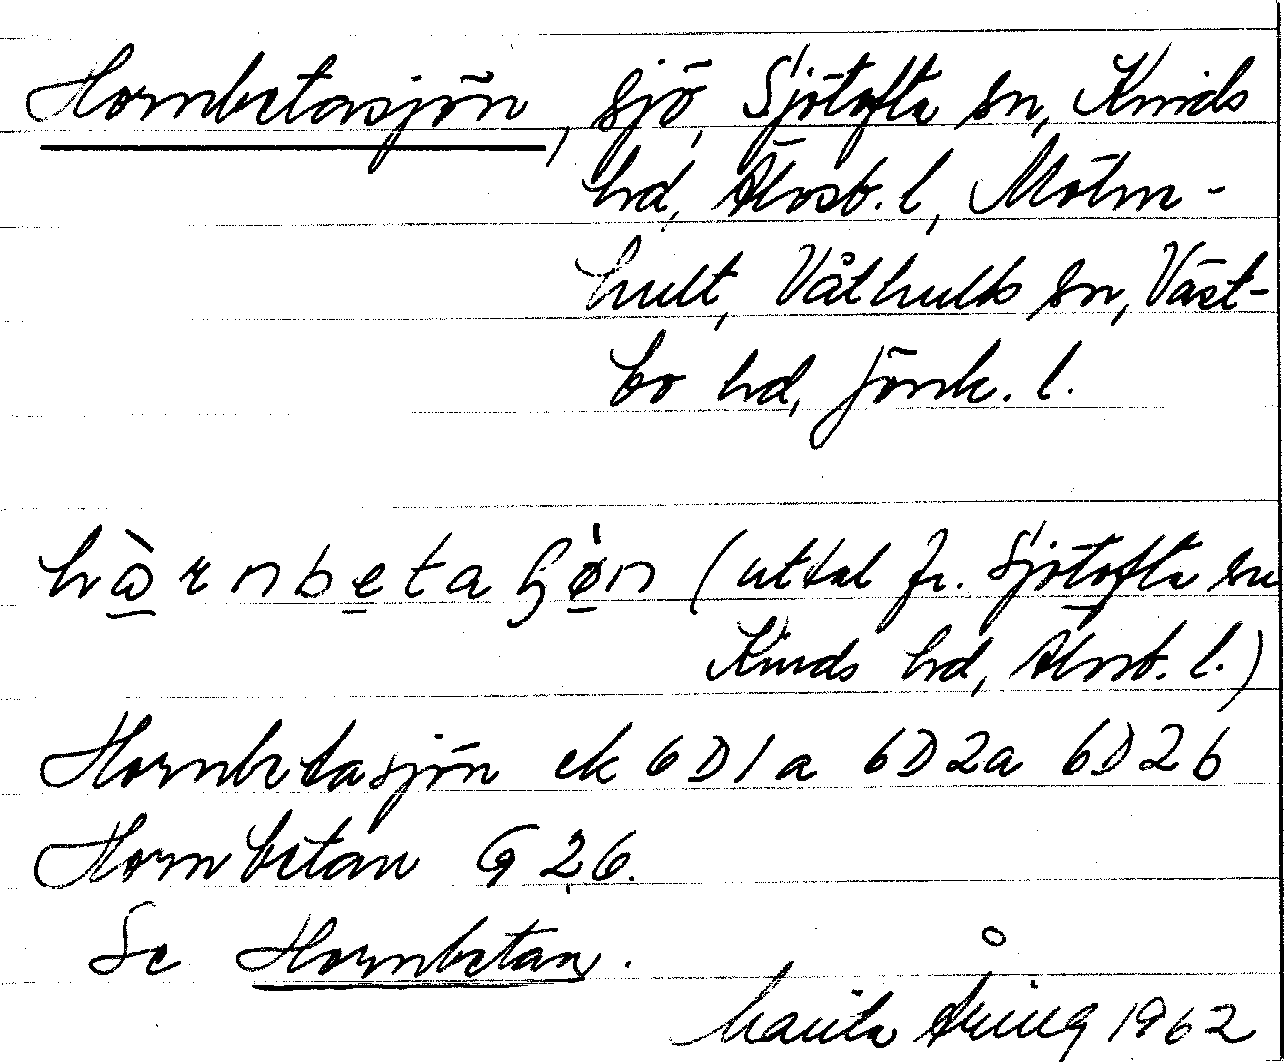 Hornbetasjön, sjö, Sjötofta sn, Kinds
hd, Älvsb. l, Mölm-
hult, Våthults sn, Väst-
bo hd, Jönk. l.
hɷ̀rnbetaʃø̀n (uttal fr. Sjötofta sn
Kinds hd, Älvsb. l.)
Hornbetasjön ek 6D1a 6D2a 6D2b
Hornbetan G 26.
Se Hornbetan.
Marita 1962